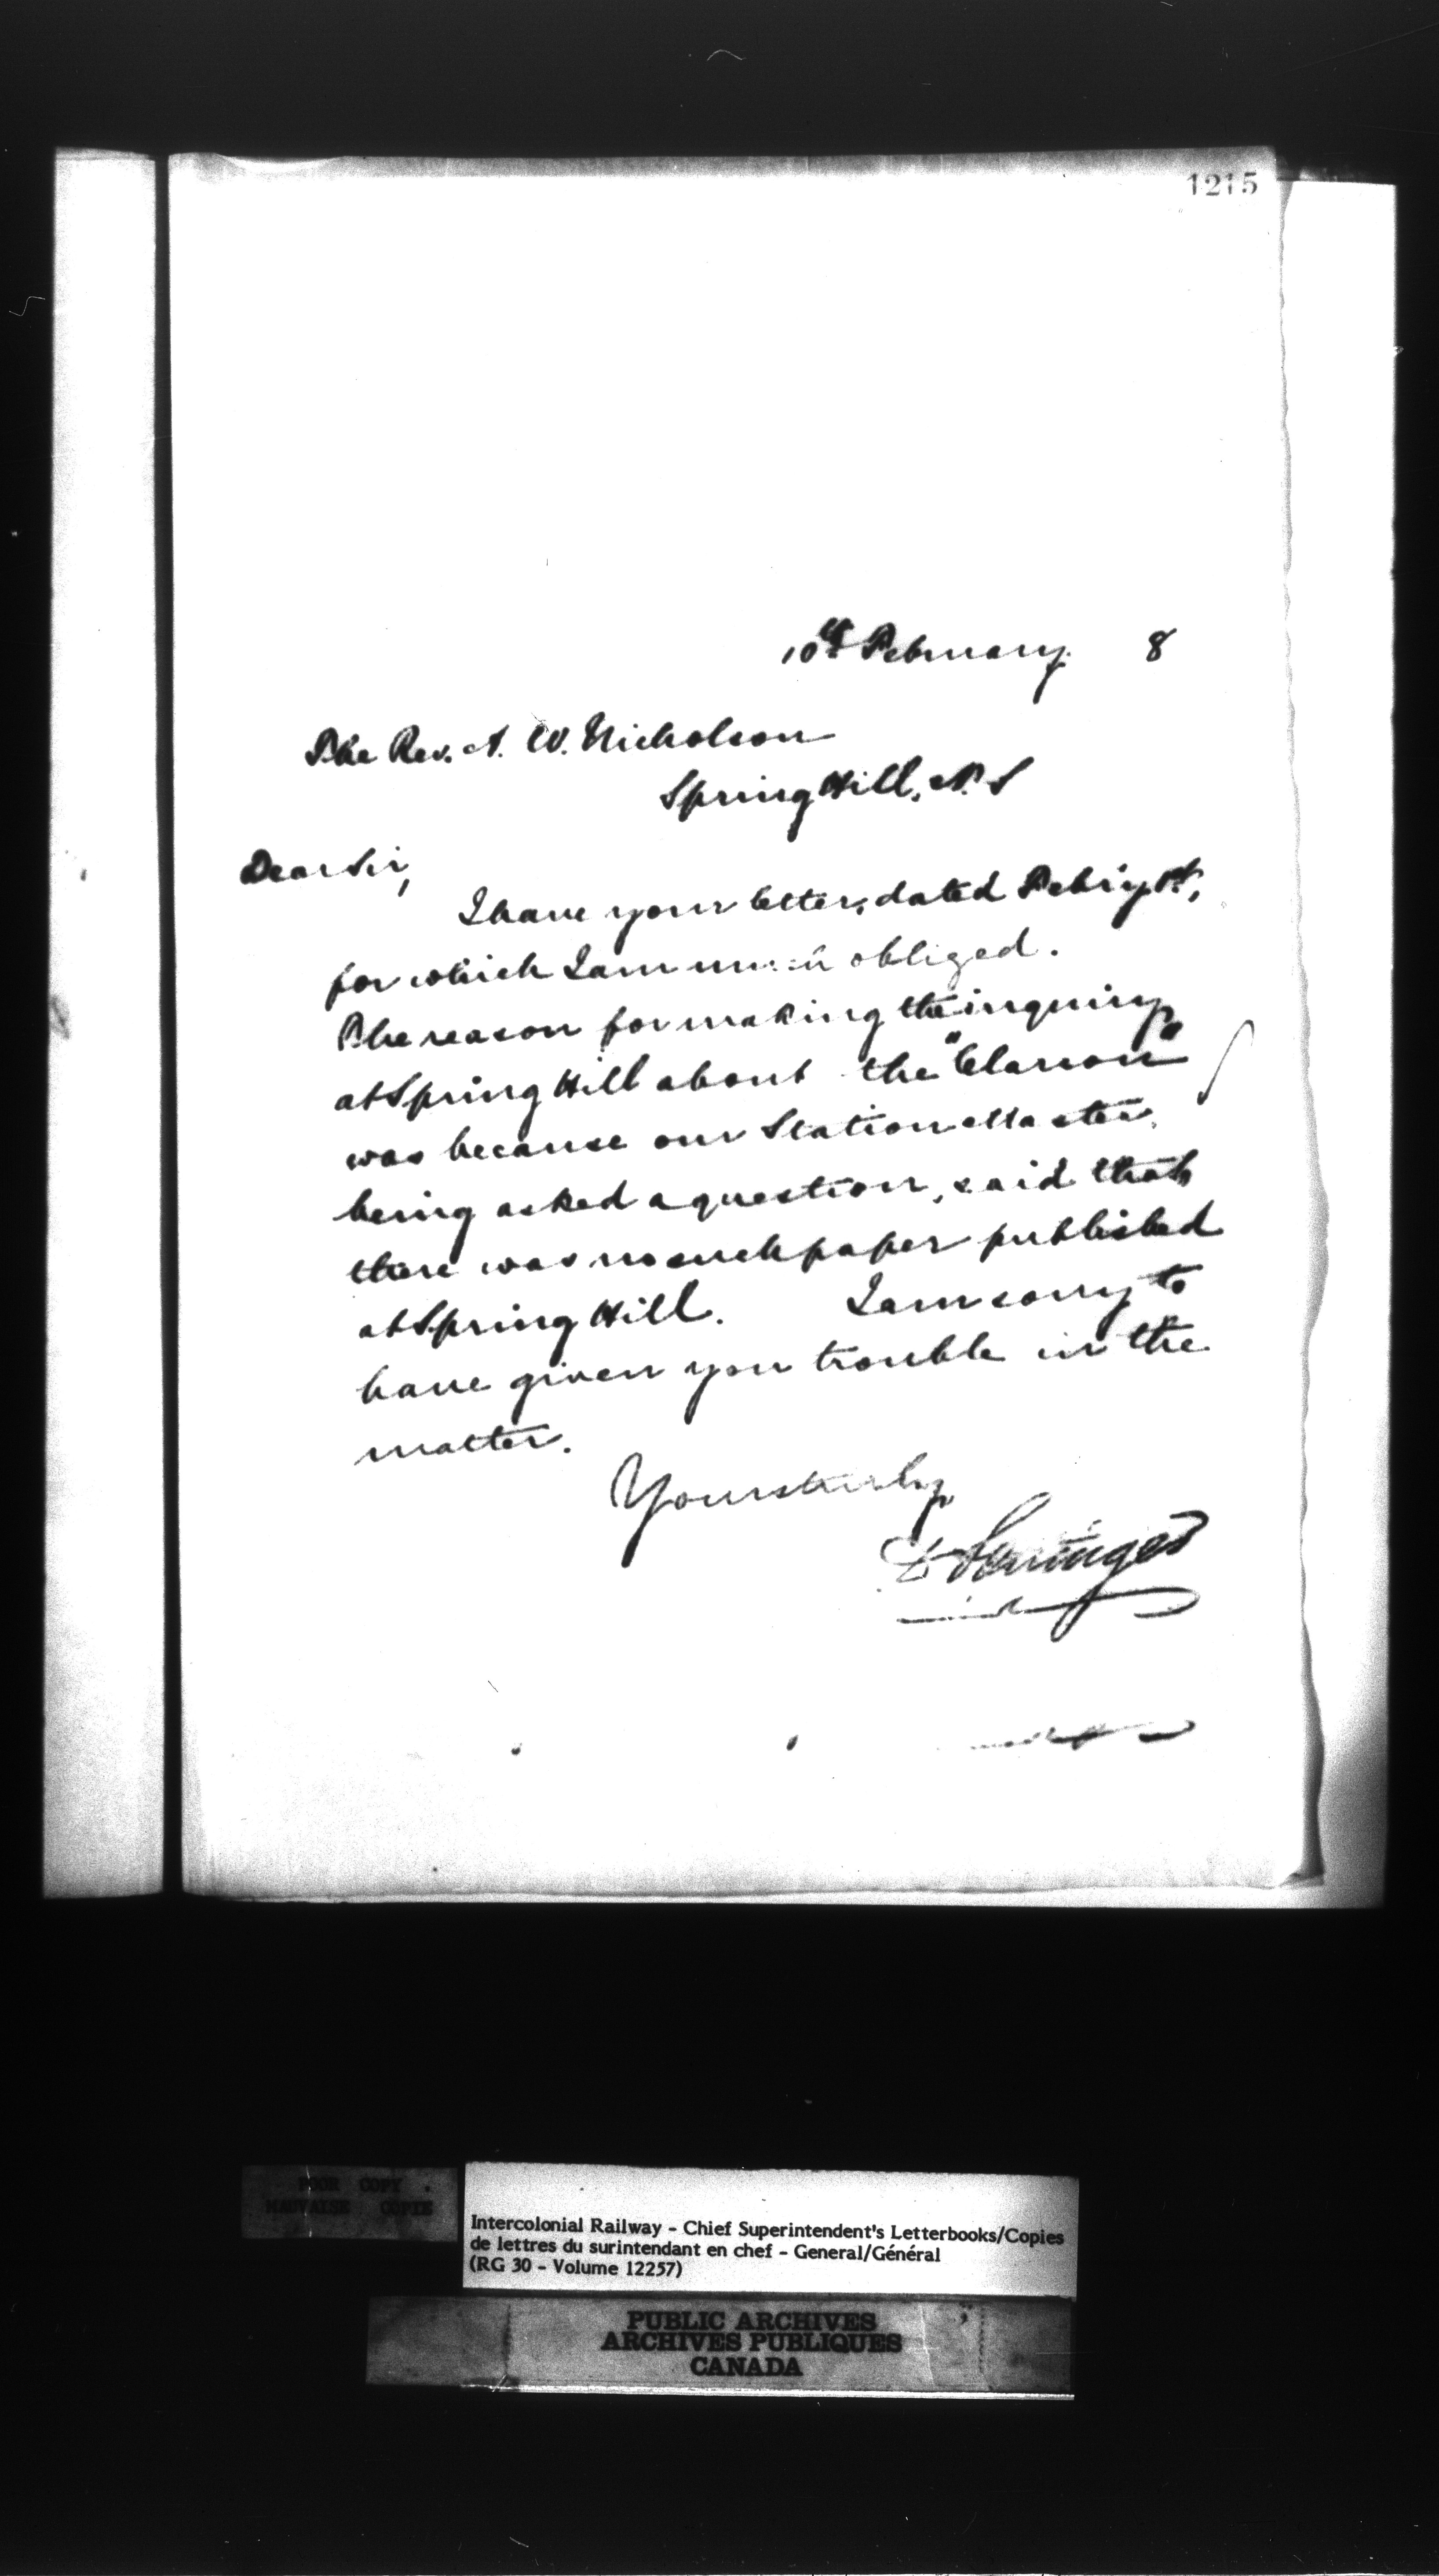 1215
10th February. 8
The Rev. A. W. Nicholson
Spring Hill, N.S
Dear Sir,
I have your letter, dated Feb'y 1st,
for which I am much obliged.
The reason for making the inquiry
at Spring Hill about the "Clarion"
was because our Station Master,
being asked a question, said that
there was no such paper published
at Spring Hill. I am sorry to
have given you trouble in the
matter.
Yours truly,
D Pottinger
POOR COPY
MAUVAISE COPIE
Intercolonial Railway - Chief Superintendent's Letterbooks/Copies
de lettres du surintendant en chef - General/Général
(RG 30 - Volume 12257)
PUBLIC ARCHIVES
ARCHIVES PUBLIQUES
CANADA